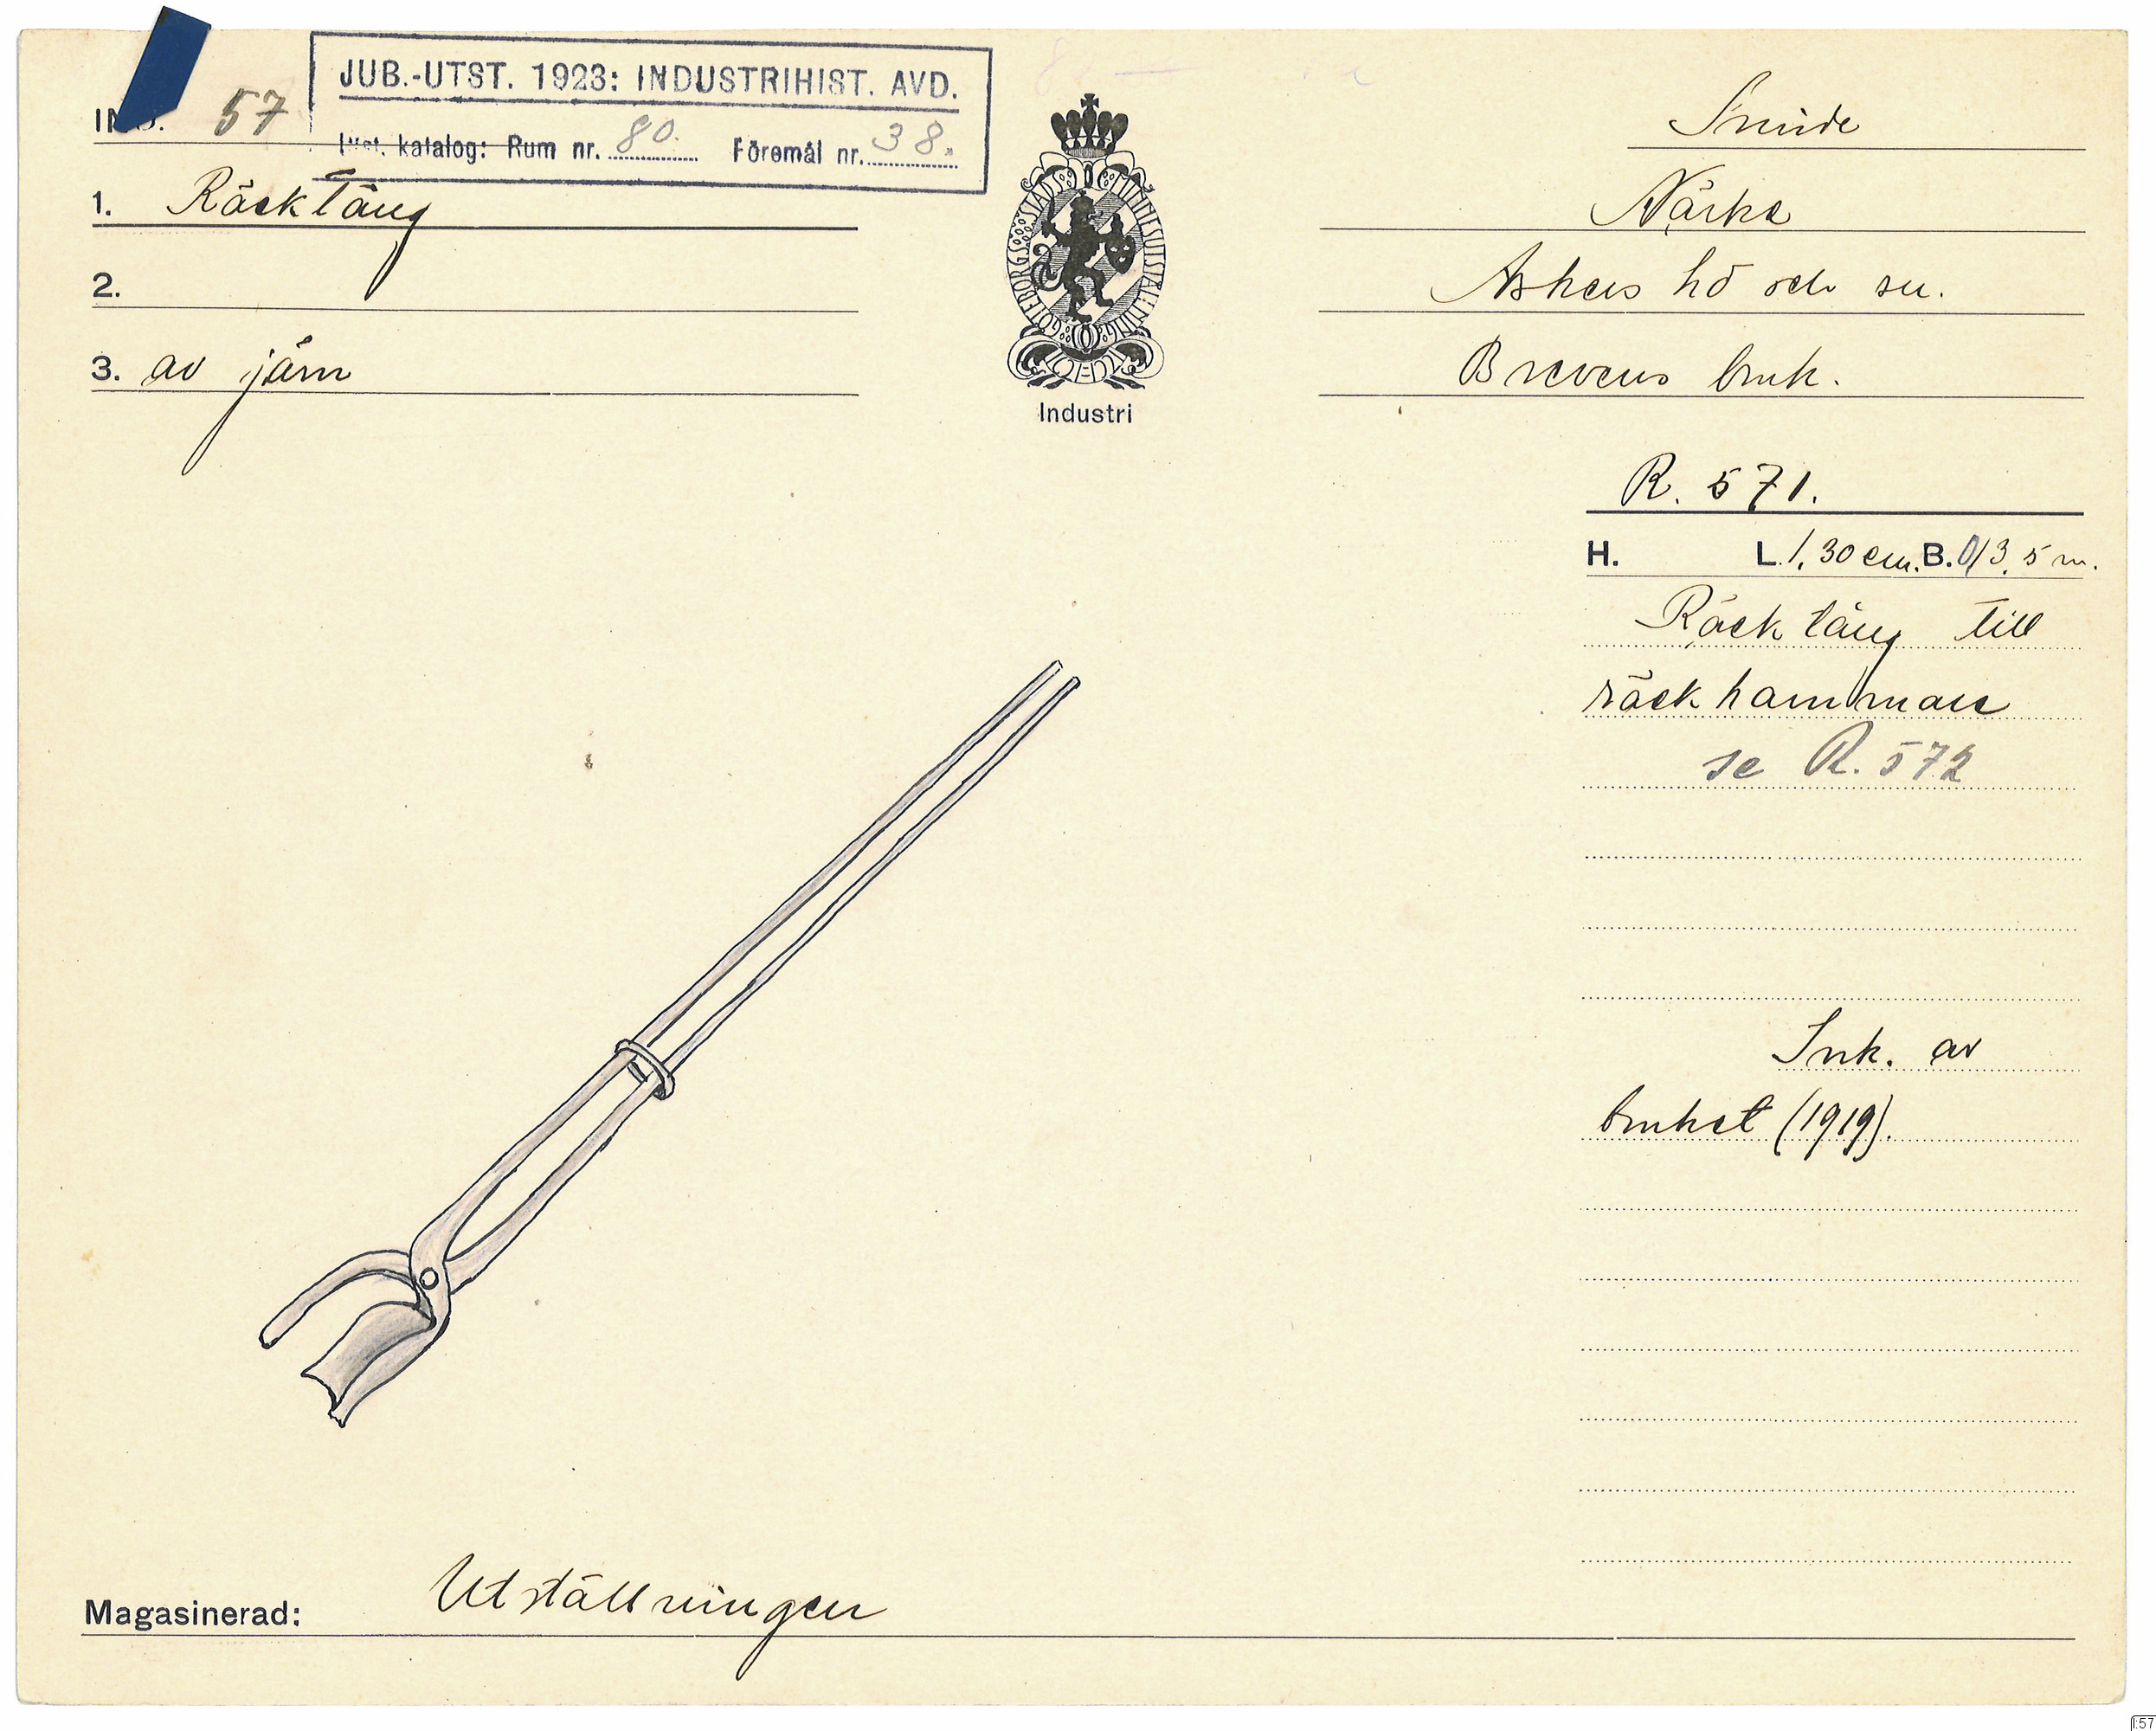 JUB.-UTST. 1923: INDUSTRIHIST. AVD.
57
katalog: Rum nr. 80. Föremål nr. 38.
1. Räcktång
2.
3. av järn
GÖTEBORGS STADS MINNESUTSTÄLLNING
Industri
Smide
Närke
Askers hd och sn.
Brevens bruk.
R. 571.
H. L. 1,30 cm. B. 0,13,5 m.
Räcktång till
räckhammare
se R. 572
Ink. av
bruket (1919).
Magasinerad: Utställningen